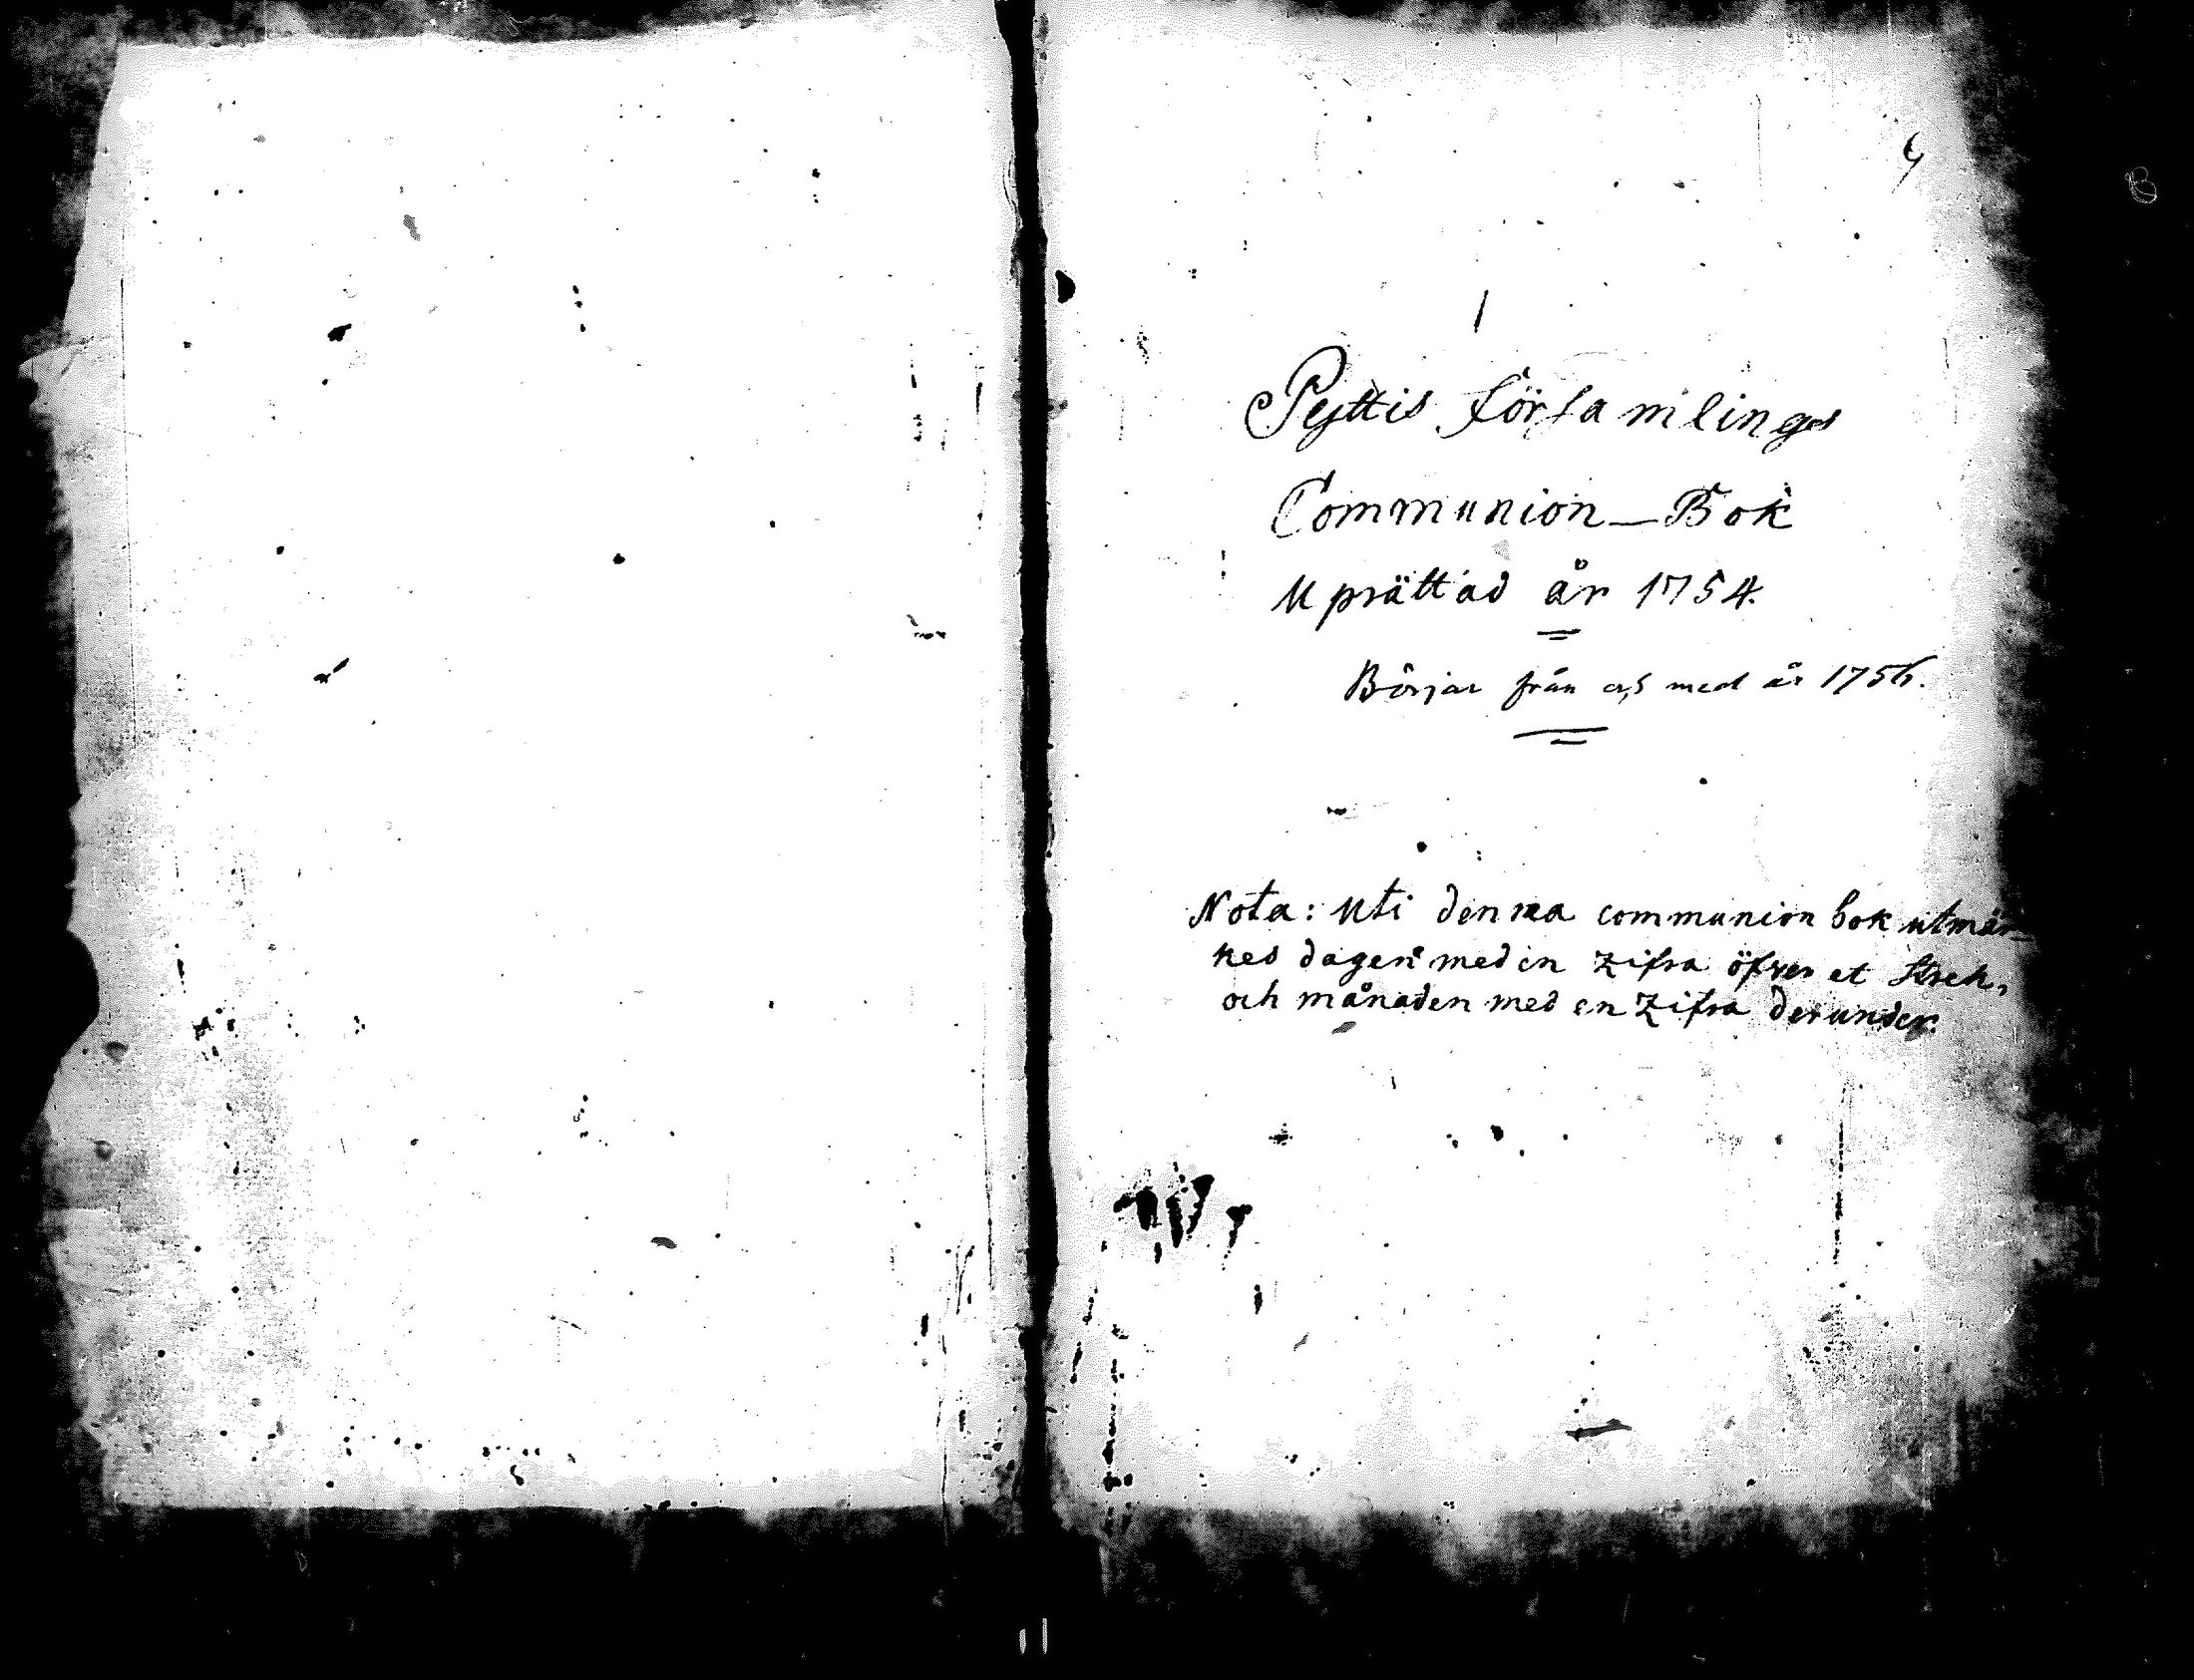 Pyttis Församlings
Communion-Bok
Uprättad år 1754.
Börjar från och med år 1756.
Nota: Uti denna communion bok utmär-
kes dagen med en zifra öfver et streck,
och månaden med en zifra derunder.